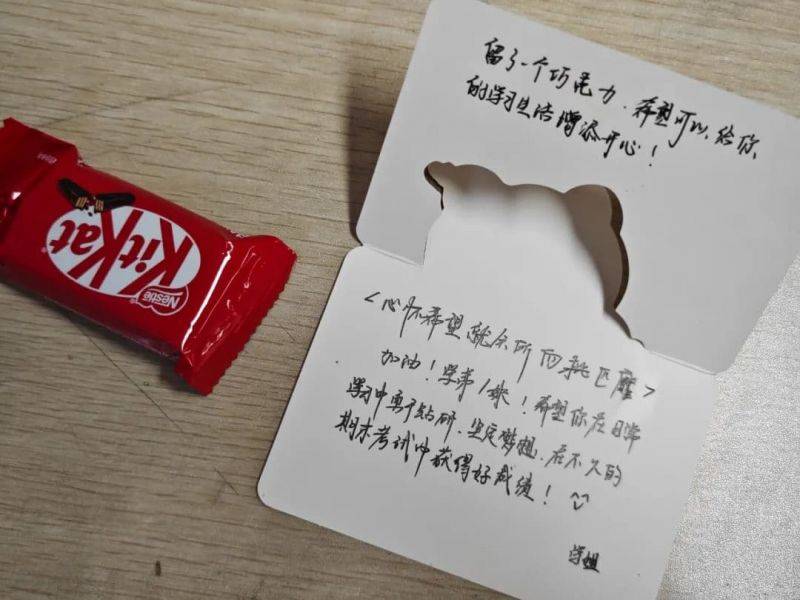 留了一个巧克力，希望可以给你
的学习生活增添开心！
<心怀希望就会所向披靡>
加油！学弟/妹！希望你在日常
学习中勇于钻研，坚定梦想，在不久的
期末考试中获得好成绩！
学姐
Nestlé
KitKat